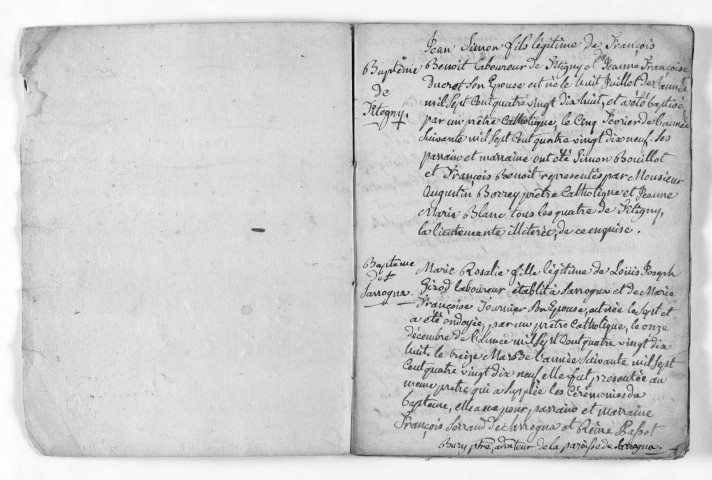 Baptême
de
Fétigny.
Jean Simon fils légitime de François
Benoit laboureur de Fétigny et Jeanne Françoise
Ducrot son Epouse est né le huit Juillet de l'année
mil Sept Cent quatre vingt dix huit, et a été baptisé
par un prêtre Catholique, le Cinq Fevrier de l'année
Suivante mil Sept Cent quatre vingt dix neuf. Ses
parain et marraine ont été Simon Bouillot
et François Benoit representés par Monsieur
Augustin Borrey prêtre Catholique et Jeanne
Marie Blanc tous les quatre de Fétigny,
la lieutenante illiterée, de ce enquise.
Baptême
de
Sarrogna.
Marie Rosalie fille légitime de Louis Joseph
Girod laboureur établit à Sarrogna et de Marie
Françoise Fournier Son Epouse, est née le Sept et
a été ondoyée, par un prêtre Catholique, le onze
décembre de l'année mil Sept Cent quatre vingt dix
huit, le treize Mars de l'année Suivante mil Sept
Cent quatre vingt dix neuf elle fut presentée au
meme pretre qui a Supplée les Cérémonies du
baptême, elle a eu pour parrain et marraine
François Sorrand de Sarrogna et Reine Passot
Bury ptre, adm.teur de la paroisse de Sarrogna.